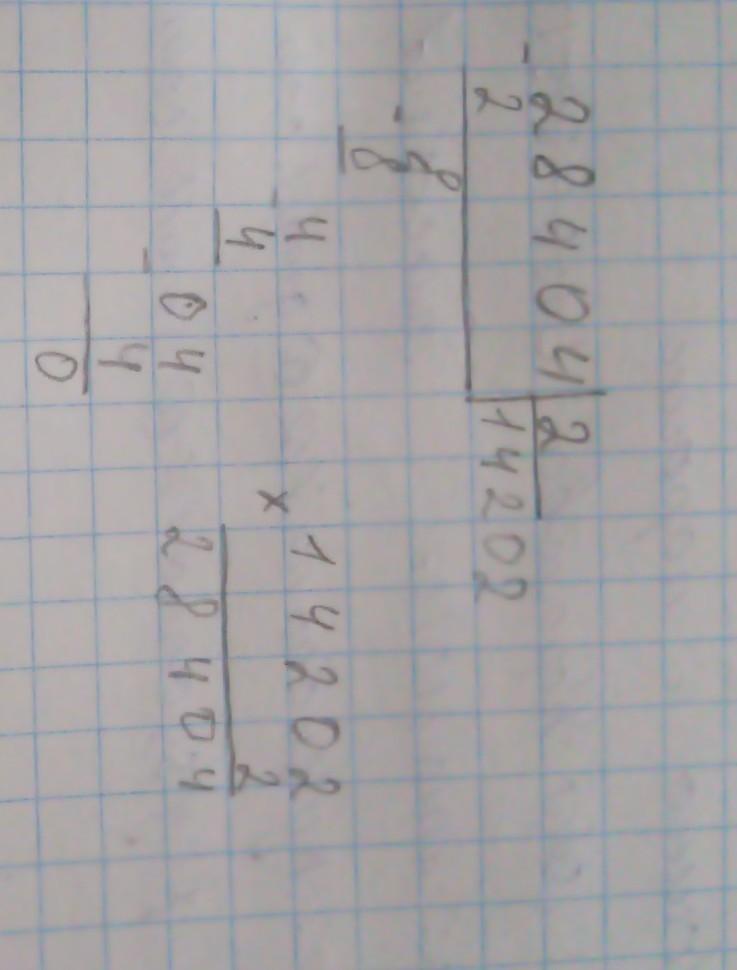 - 28404 | 2
2 14202
- 8
8
- 4
4
- 04
4
0
× 14202
2
28404